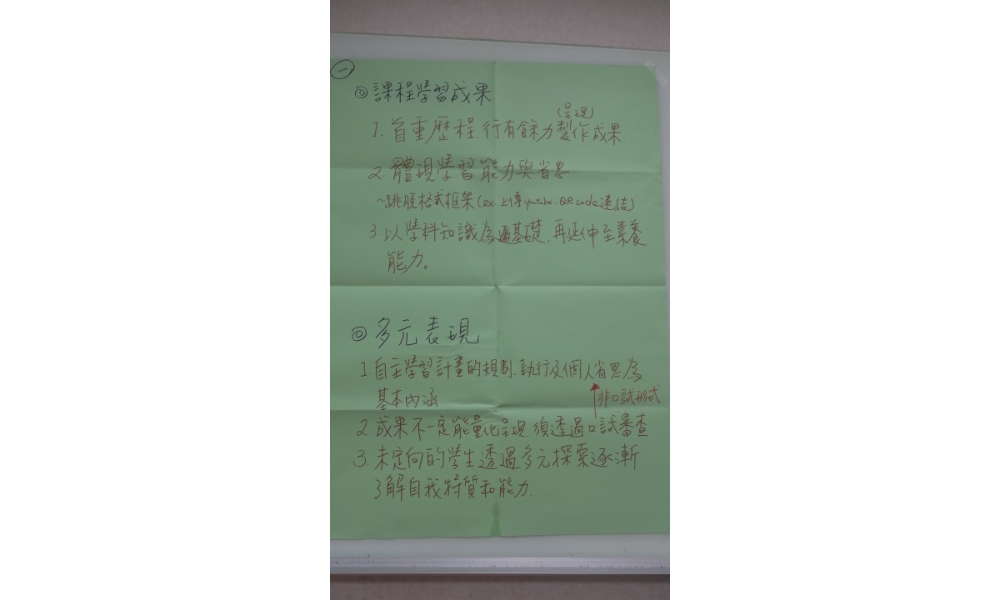 一
◎課程學習成果
(呈現)
1. 首重歷程,行有餘力製作成果
2. 體現學習能力與省思
~跳脫格式框架(ex.上傳youtube.QR code連結)
3. 以學科知識為基礎,再延伸至素養
能力。
◎多元表現
1. 自主學習計畫的規劃、執行及個人省思為
基本內涵
非口試形式
2. 成果不一定能量化呈現,須透過口試審查
3. 未定向的學生透過多元探索逐漸
了解自我特質和能力.